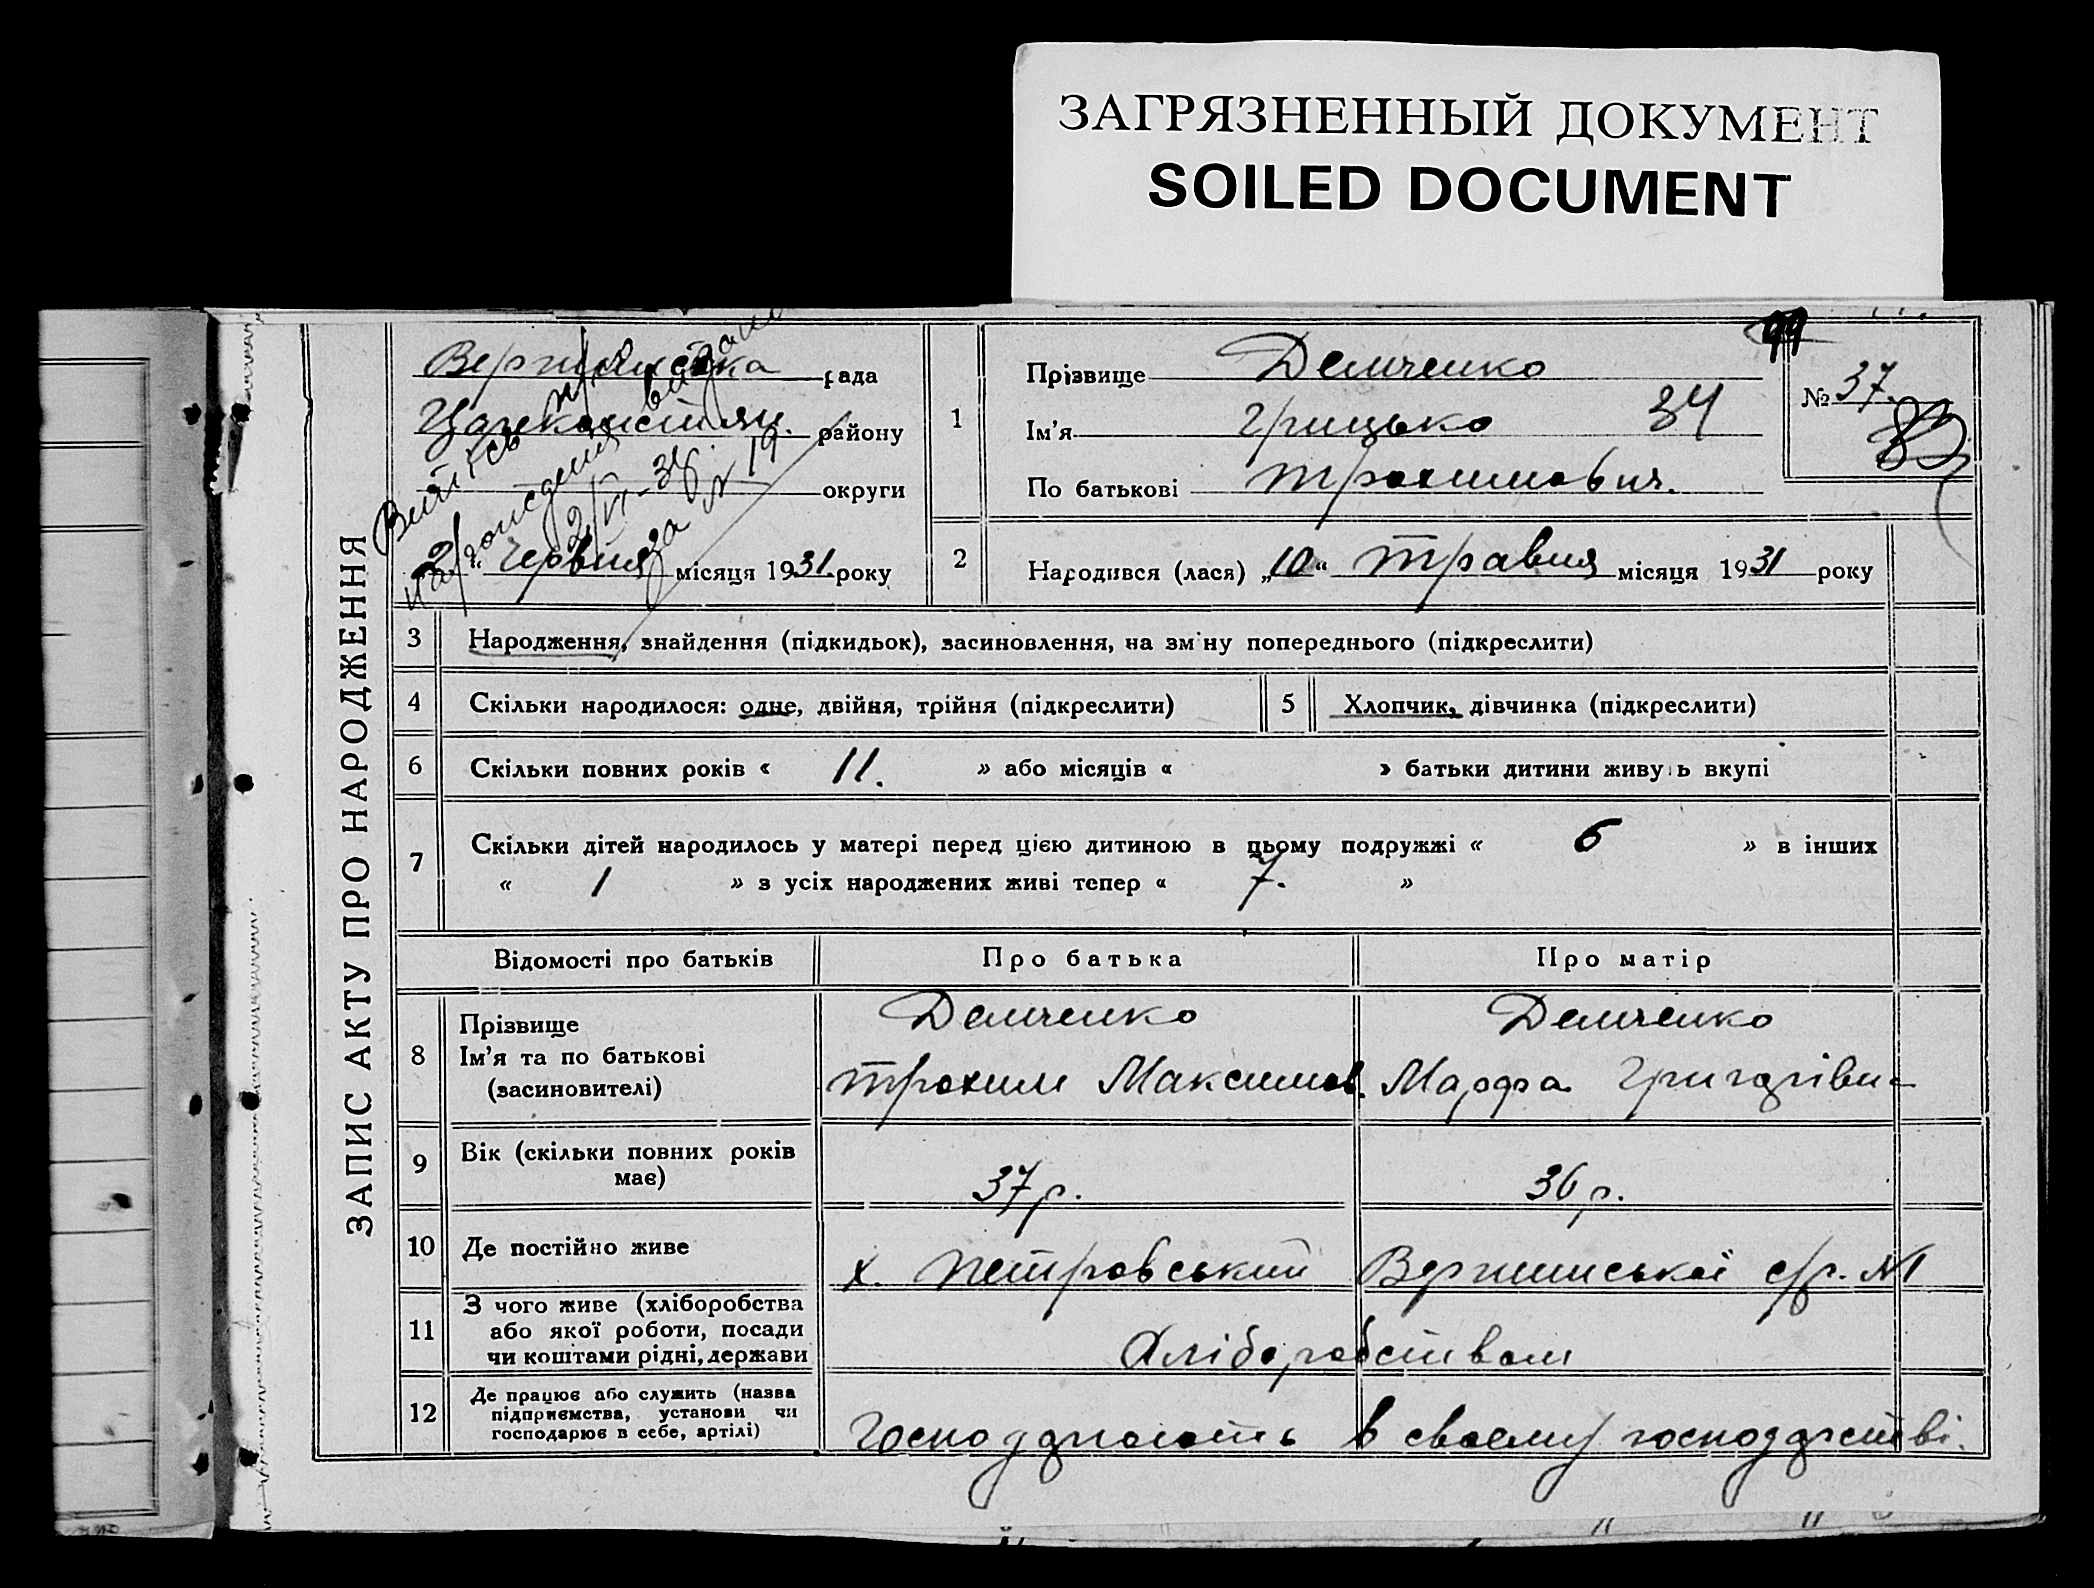 ЗАГРЯЗНЕННЫЙ ДОКУМЕНТ
SOILED DOCUMENT
ЗАПИС АКТУ ПРО НАРОДЖЕННЯ
рада
району
округи
"2" червня місяця 1931 року
на
2/VI-34
за № 19
1
Прізвище Демченко
Ім'я Грицько 34
По батькові Трохимович.
99
№ 37.
2 Народився (лася) „10“ Травня місяця 1931 року
3 Народження, знайдення (підкидьок), засиновлення, на зміну попереднього (підкреслити)
4 Скільки народилося: одне, двійня, трійня (підкреслити)
5 Хлопчик, дівчинка (підкреслити)
6 Скільки повних років « 11. » або місяців « » батьки дитини живуть вкупі
7 Скільки дітей народилось у матері перед цією дитиною в цьому подружжі « 6 » в інших
« 1 » з усіх народжених живі тепер « 7. »
Відомості про батьків Про батька Про матір
8 Прізвище Демченко Демченко
Ім'я та по батькові Трохим Максимов. Марфа Григорівна
(засиновителі)
9 Вік (скільки повних років
має) 37 р. 36 р.
10 Де постійно живе х. Петровський с/р. №1
11 З чого живе (хліборобства
або якої роботи, посади
чи коштами рідні, держави Хліборобством
12 Де працює або служить (назва
підприємства, установи чи
господарює в себе, артілі) Господарюють в своєму господарстві.